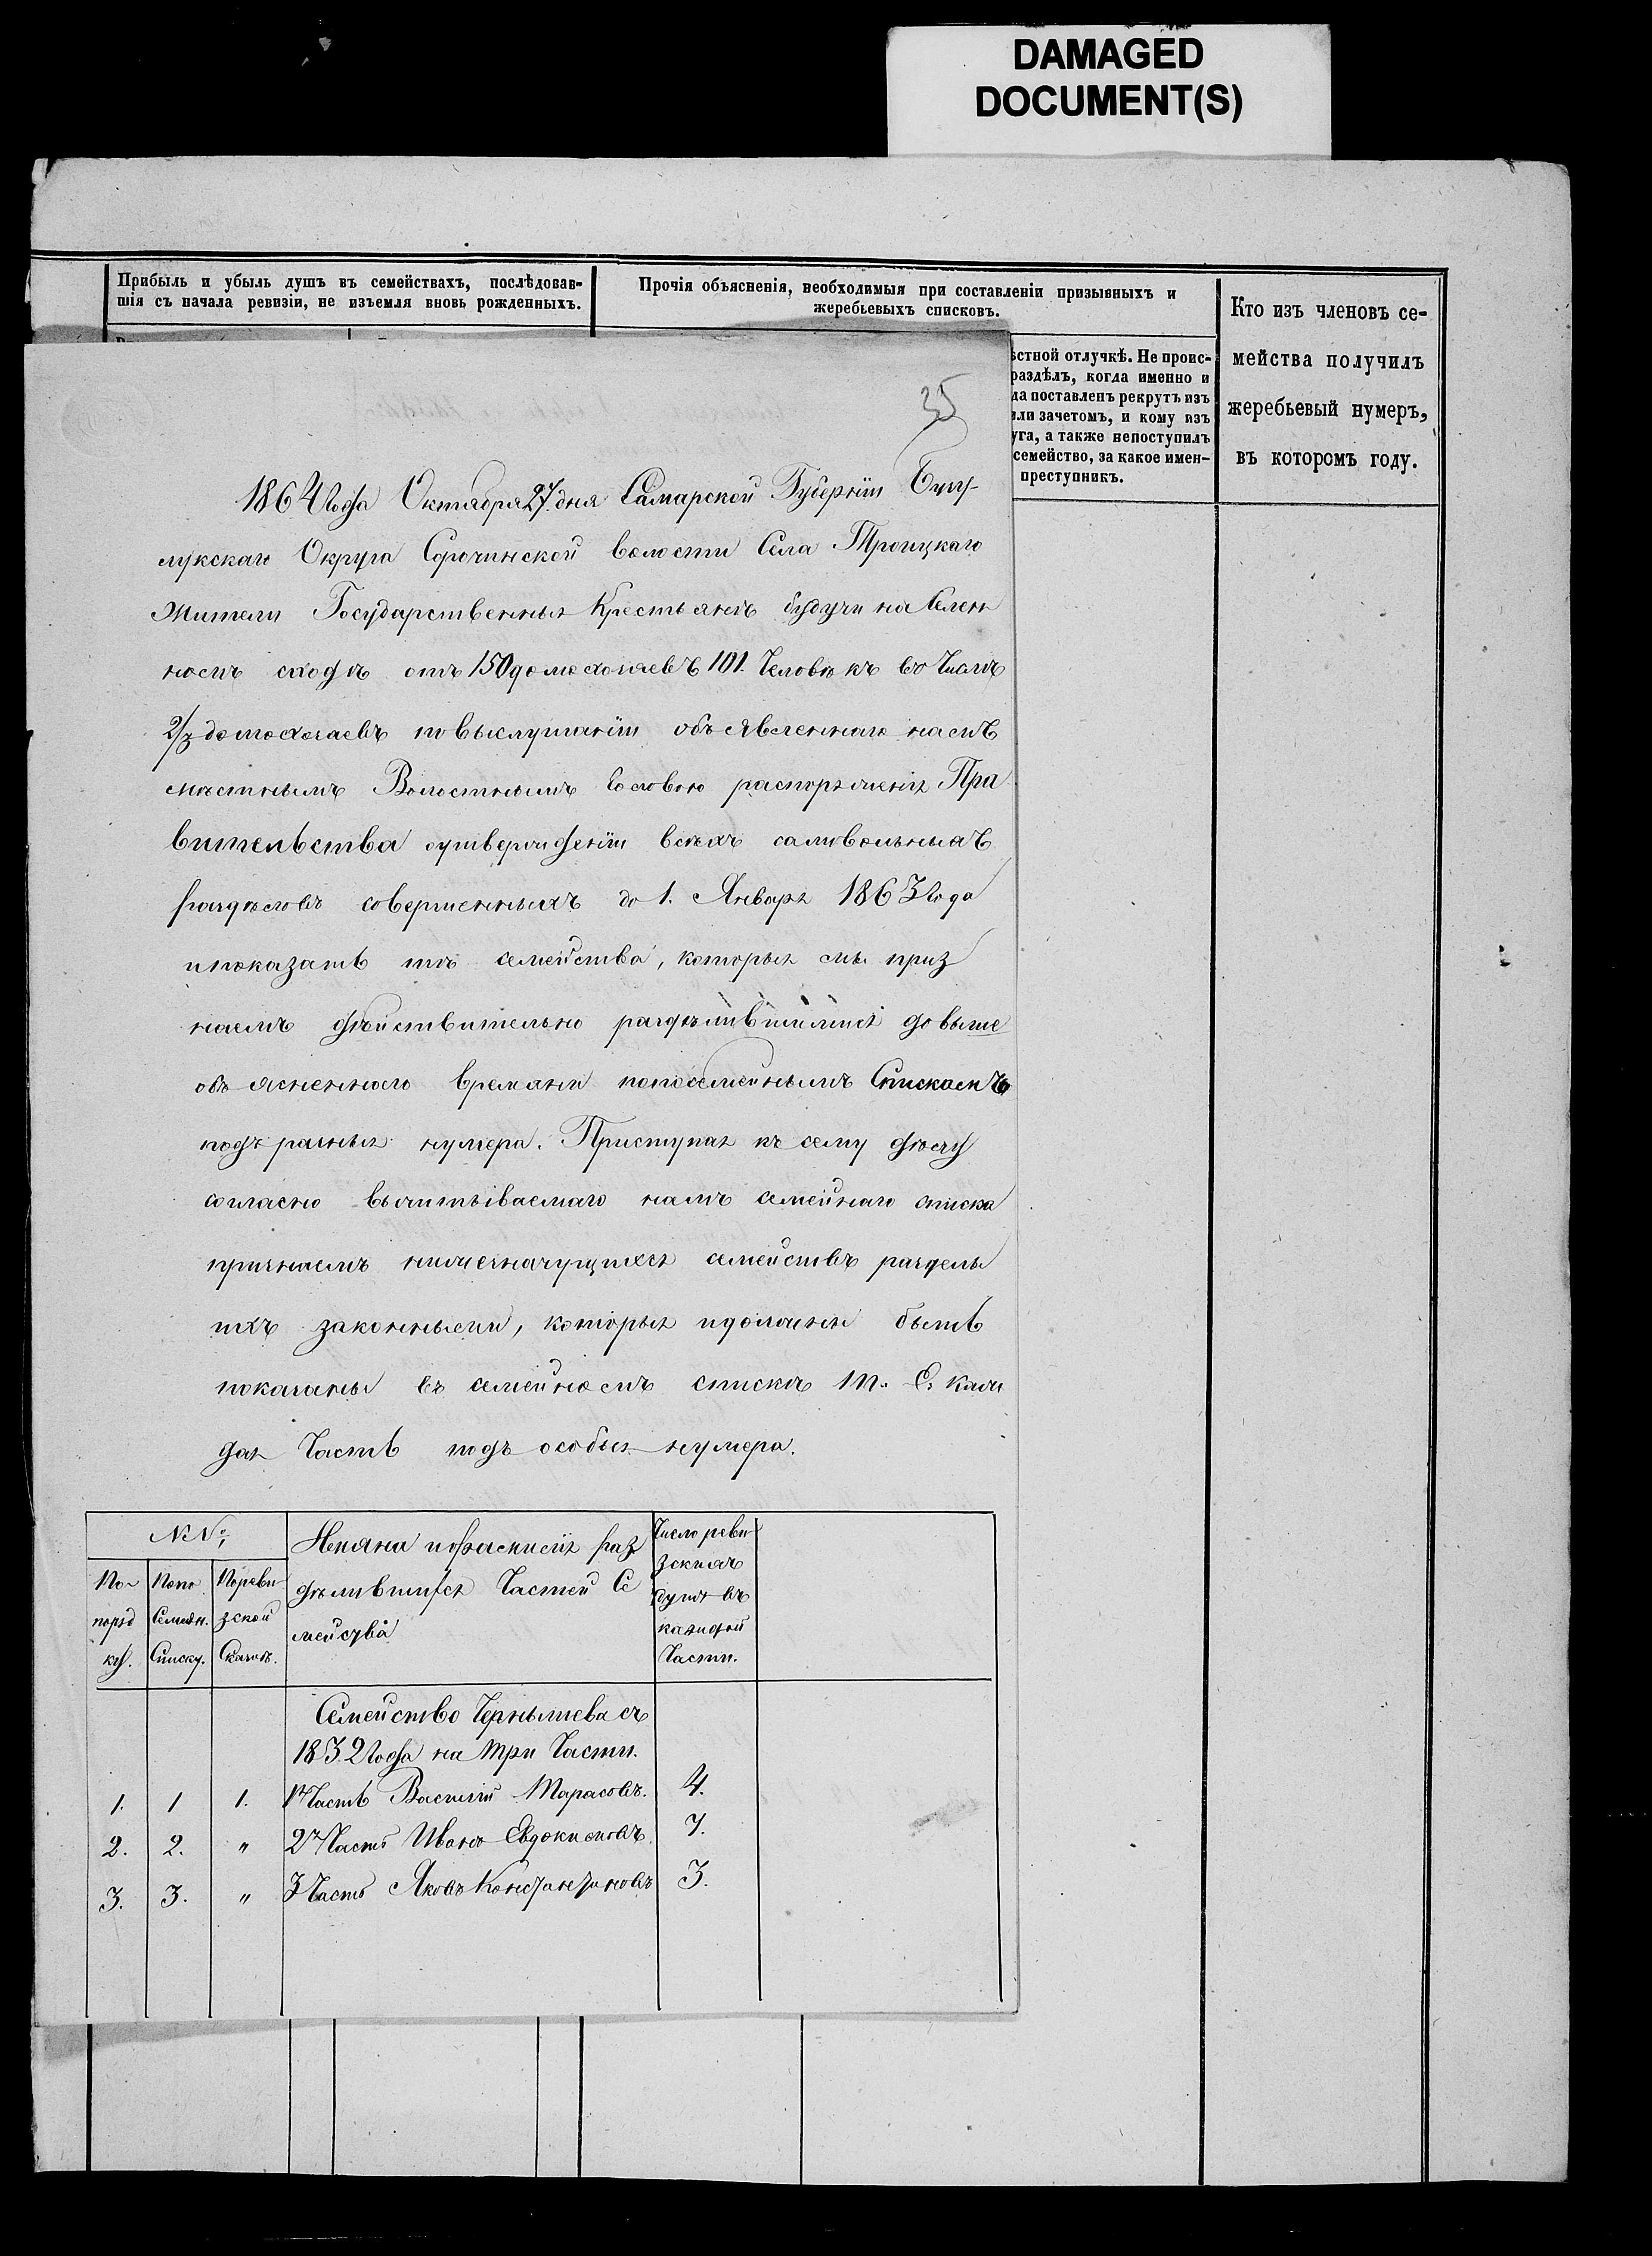 DAMAGED
DOCUMENT(S)
Прибыль и убыль душъ въ семействахъ, послѣдовав-
шія съ начала ревизіи, не изъемля вновь рожденныхъ.
Прочія объясненія, необходимыя при составленіи призывныхъ и
жеребьевыхъ списковъ.
Кто изъ членовъ се-
мейства получилъ
жеребьевый нумеръ,
въ которомъ году.
ѣстной отлучкѣ. Не проис-
раздѣлъ, когда именно и
да поставленъ рекрутъ изъ
или зачетомъ, и кому изъ
уга, а также непоступилъ
семейство, за какое имен-
преступникъ.
35
1864 Года Октября 27 дня Самарской Губернiи Бузу-
лукскаго Округа Сорочинской волости Села Троицкаго
Жители Государственныя Крестьянъ будучи на Селен
номъ сходѣ отъ 150 домохозяевъ 101. Человѣкъ во Числѣ
2/3 домохозяевъ повыслушанiи объявленнаго намъ
мѣстнымъ Волостнымъ Головою распоряженiя Пра
вительства оутвержденiи всѣхъ самовольныхъ
раздѣловъ совершенныхъ до 1. Января 1863 Года
ипоказать тѣ семейства, которыя мы приз
наемъ дѣйствительно раздѣлившимися до выше
объясненнаго времяни попосемейнымъ Спискамъ
подъ разныя нумера. Приступая къ сему дѣлу
согласно вычитываемаго намъ семейнаго списка
признаемъ нижезначущихся семействъ разделы
ихъ законными, которыя идолжны быть
показаны въ семейномъ спискѣ т. е. каж
дая Часть подъ особыя нумера.
№№:
По-
поряд
ку.
Попо
Семейн.
Списку.
Пореви
зской
Сказкѣ.
Имяна ифамилiи раз
дѣлившихся Частей Се
мейства
Число реви
зскихъ
душъ въ
каждой
Части.
Семейство Чернышева съ
1832 Года на три Части.
1. 1 1. 1я Часть Василiй Тарасовъ. 4.
2. 2. " 2я Часть Иванъ Евдокимовъ 7.
3. 3. " 3 Часть Яковъ Константиновъ 3.